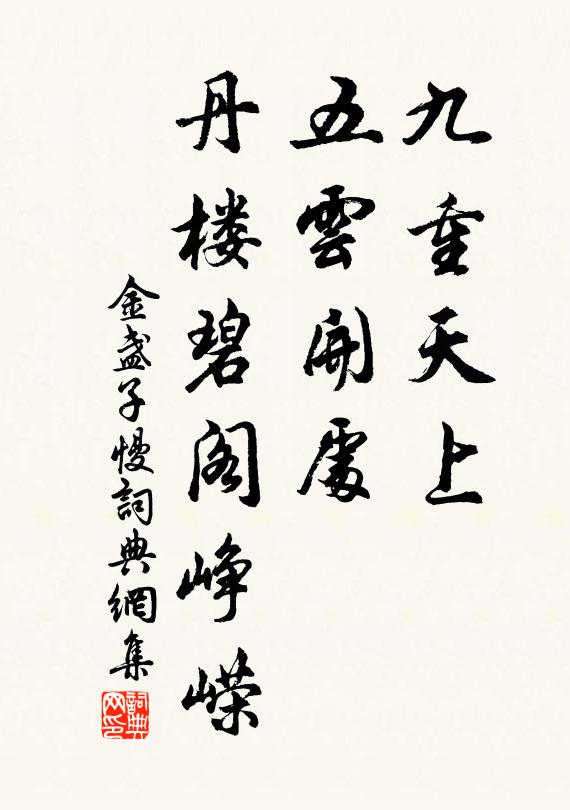 九重天上
五雲開處
丹楼碧阁峥嵘
金盞子慢詞典網集
詞典网印